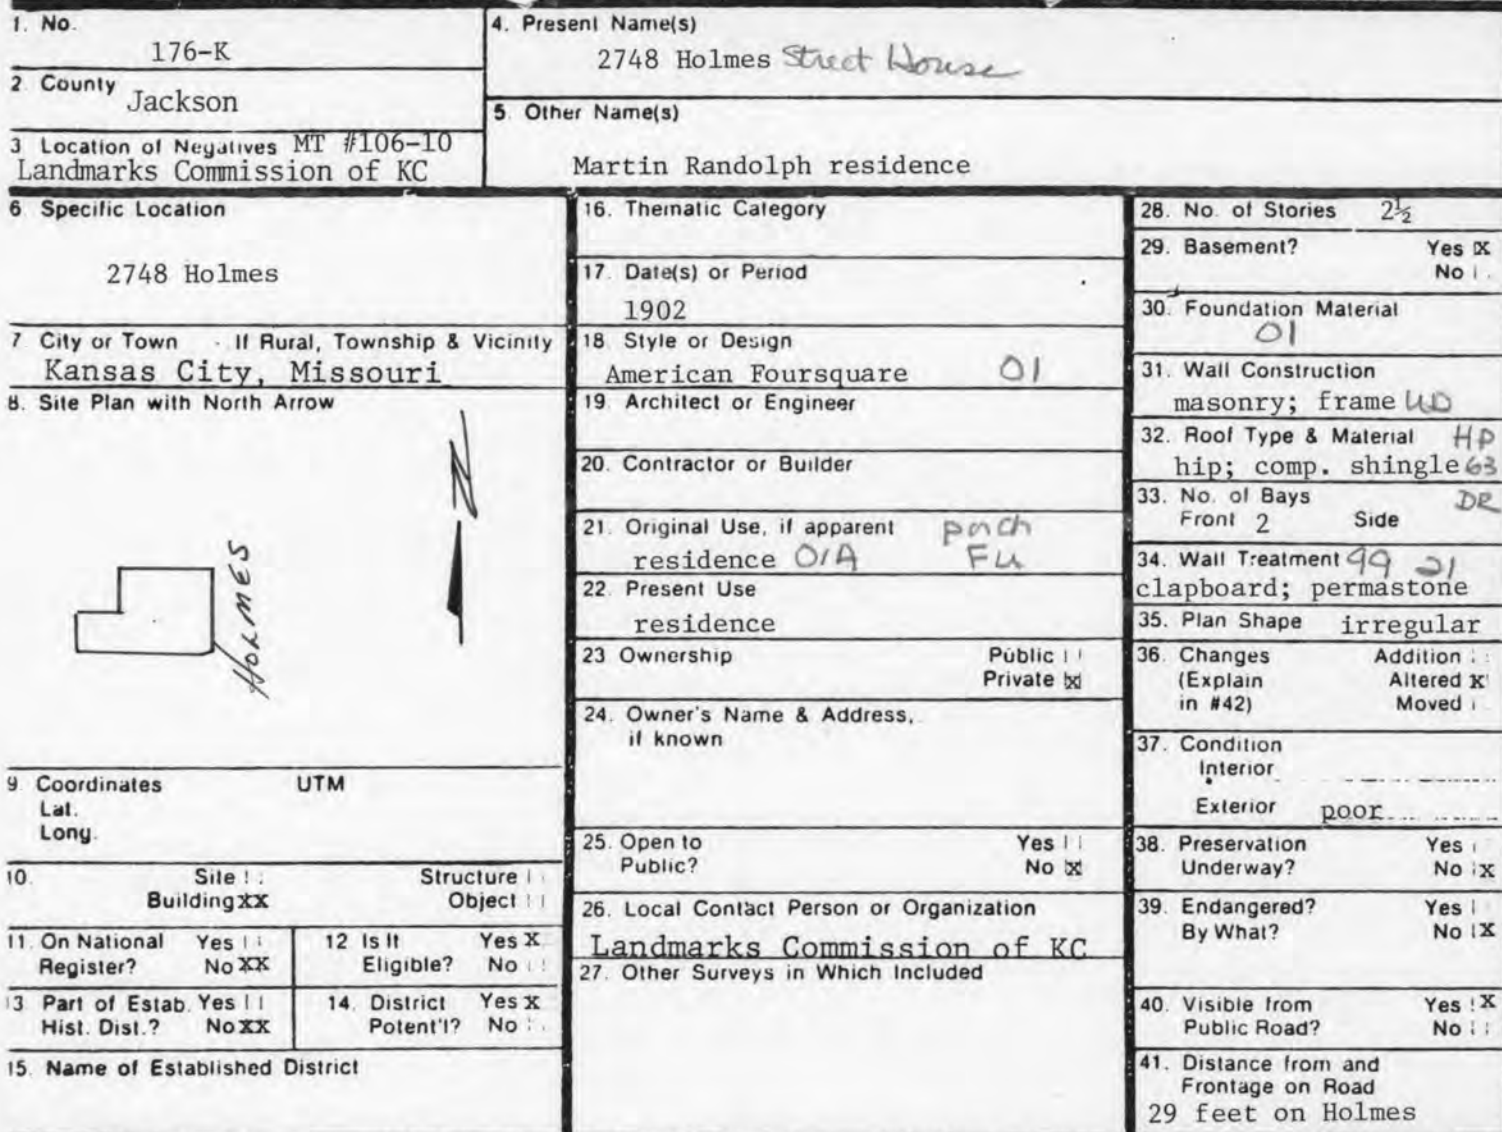 1. No.
176-K
2. County
Jackson
3. Location of Negatives MT #106-10
Landmarks Commission of KC
4. Present Name(s)
2748 Holmes Street House
5. Other Name(s)
Martin Randolph residence
6. Specific Location
2748 Holmes
7. City or Town If Rural, Township & Vicinity
Kansas City, Missouri
8. Site Plan with North Arrow
N
HOLMES
9. Coordinates UTM
Lat.
Long.
10. Site Structure
Building XX Object
11. On National Yes
Register? No XX
12. Is It Yes X
Eligible? No
13. Part of Estab. Yes
Hist. Dist.? No XX
14. District Yes X
Potent'l? No
15. Name of Established District
16. Thematic Category
17. Date(s) or Period
1902
18. Style or Design
American Foursquare 01
19. Architect or Engineer
20. Contractor or Builder
21. Original Use, if apparent porch
residence 01A FU
22. Present Use
residence
23. Ownership Public
Private X
24. Owner's Name & Address,
if known
25. Open to Yes
Public? No X
26. Local Contact Person or Organization
Landmarks Commission of KC
27. Other Surveys in Which Included
28. No. of Stories 2½
29. Basement? Yes X
No
30. Foundation Material
01
31. Wall Construction
masonry; frame WD
32. Roof Type & Material HP
hip; comp. shingle 63
33. No. of Bays DR
Front 2 Side
34. Wall Treatment 99 21
clapboard; permastone
35. Plan Shape irregular
36. Changes Addition
(Explain Altered X
in #42) Moved
37. Condition
Interior
Exterior poor
38. Preservation Yes
Underway? No X
39. Endangered? Yes
By What? No X
40. Visible from Yes X
Public Road? No
41. Distance from and
Frontage on Road
29 feet on Holmes